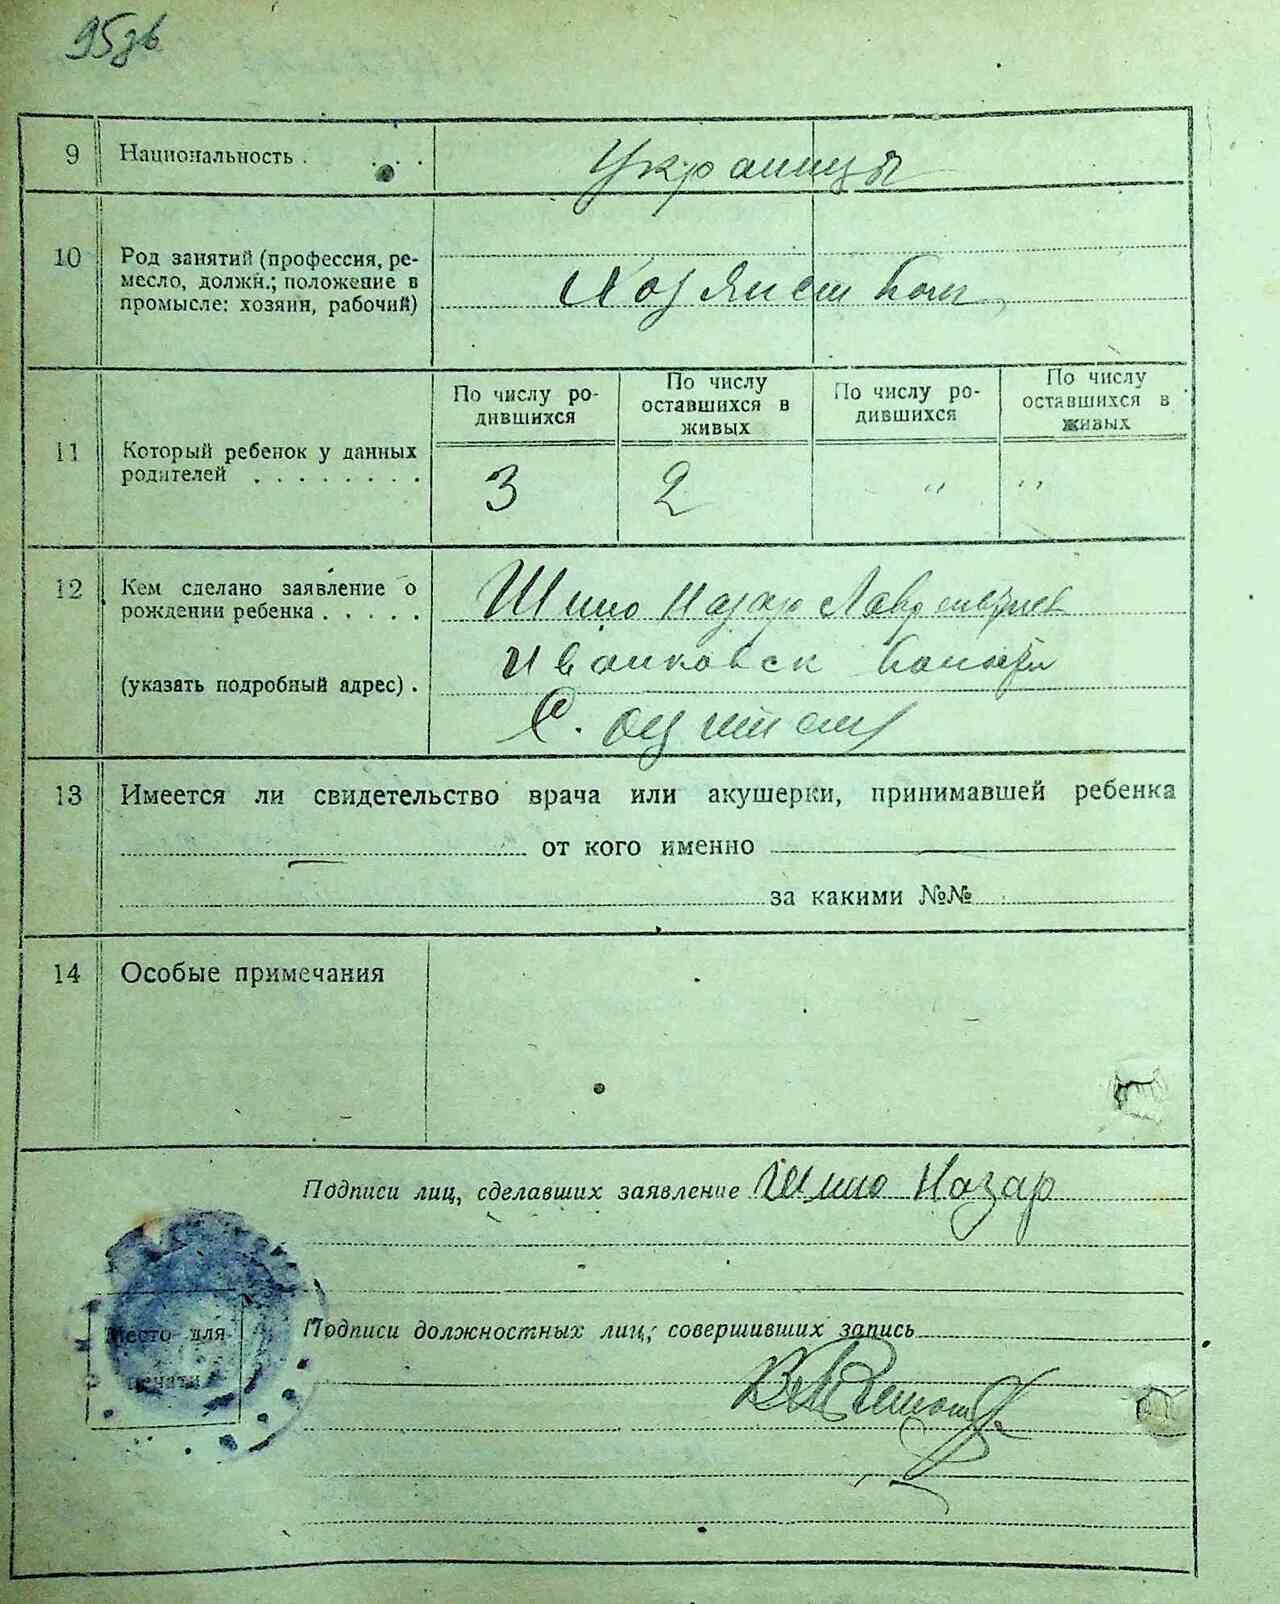 95зв
9 Национальность . . . . Украинцы
10 Род занятий (профессия, ре-
месло, должн.; положение в
промысле: хозяин, рабочий)
11 Который ребенок у данных
родителей . . . . . . . .
По числу ро-
дившихся
По числу
оставшихся в
живых
По числу ро-
дившихся
По числу
оставшихся в
живых
3 2 " "
12 Кем сделано заявление о
рождении ребенка . . . . .
(указать подробный адрес) .
Назар
С.
13 Имеется ли свидетельство врача или акушерки, принимавшей ребенка
от кого именно
за какими №№
14 Особые примечания
Подписи лиц, сделавших заявление Назар
Подписи должностных лиц, совершивших запись
Место для
печати